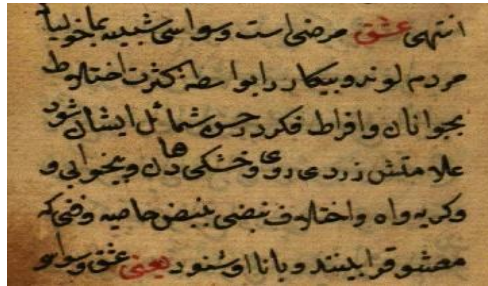 انتهی عشق مرضی است وسواسی شبیه بماخولیا
مردم لوند و بیکار را بواسطه کثرت اختلاط
بجوانان و افراط فکر در حسن شمائل ایشان شود
علامتش زردی روی و خشکی دهان و بیخوابی و
و کریه و اه و اختلاف نبضی بنبض خاصیه وضی که
معشوق را بینند و یا نا او شنود یعنی عشق وسواسی